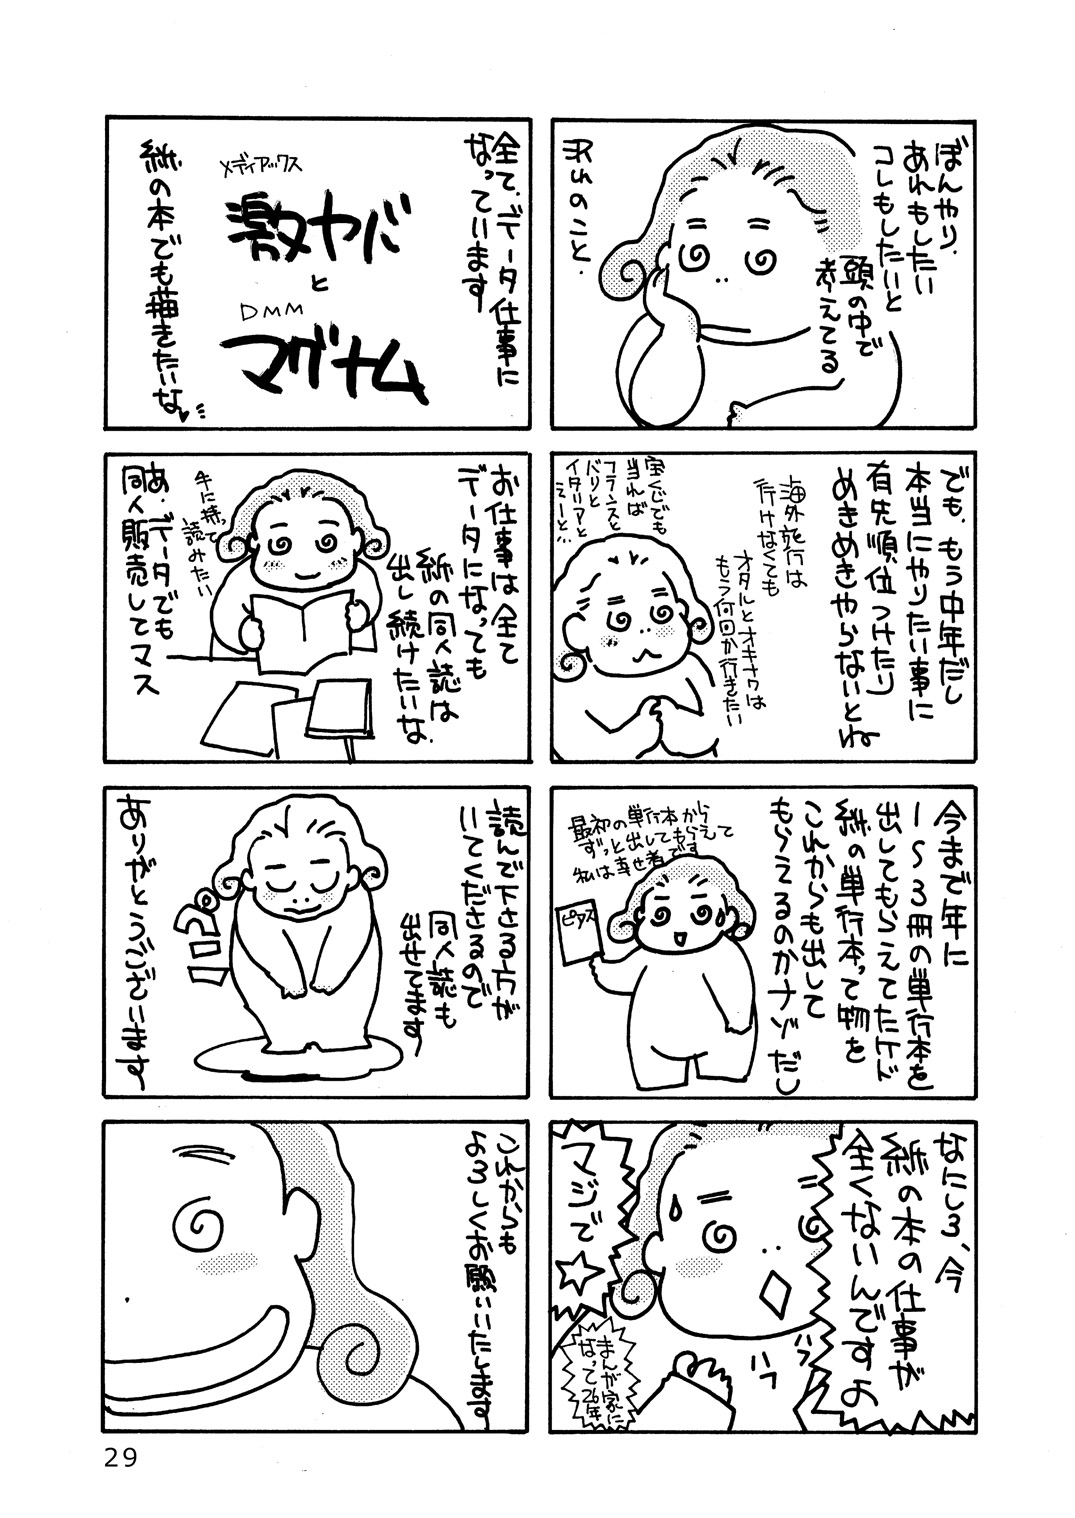 ぼんやり、
あれもしたい
コレもしたいと
頭の中で
考えてる
日々のこと.
でも、もう中年だし
本当にやりたい事に
有先順位つけたり
めきめきやらないとね
海外旅行は
行けなくても
オタルとオキナワは
もう何回か行きたい
宝くじでも
当れば
フランスと
バリと
イタリアと
えーと…
今まで年に
1〜3冊の単行本を
出してもらえてたケド
紙の単行本って物を
これからも出して
もらえるのかナゾだし
最初の単行本から
ずっと出してもらえて
私は幸せ者です
ピアス
なにしろ、今
紙の本の仕事が
全くないんですよ
マジで
ハフ
ハフ
まんが家に
なって26年
全て、データ仕事に
なっています
メディアックス
激ヤバ
と
DMM
マグナム
紙の本でも描きたいな
お仕事は全て
データになっても
紙の同人誌は
出し続けたいな.
手に持って
読みたい
あ、データでも
同人販売してマス
読んで下さる方が
いてくださるので
同人誌も
出せてます
ペコリ
ありがとうございます
これからも
よろしくお願いいたします
29